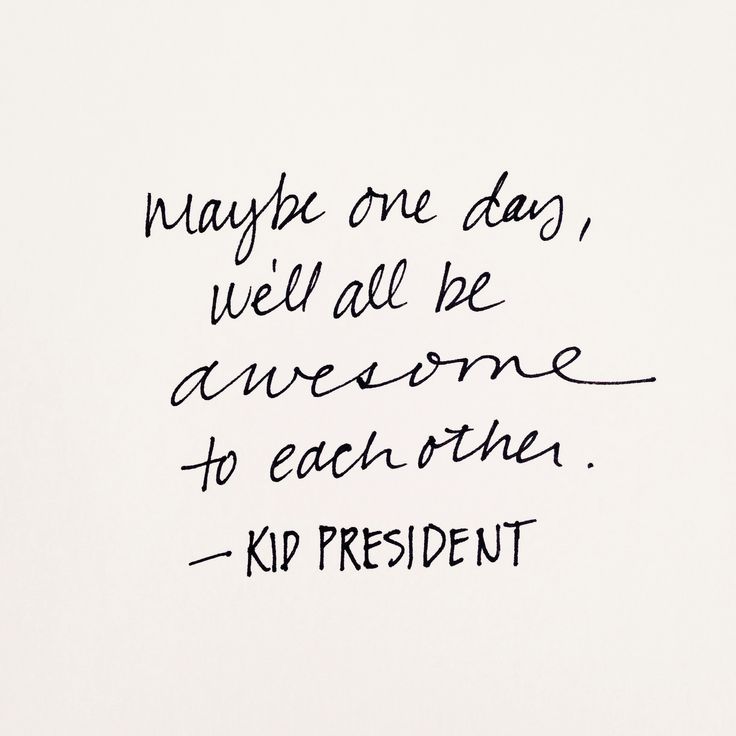 Maybe one day,
we'll all be
awesome
to each other.
— KID PRESIDENT